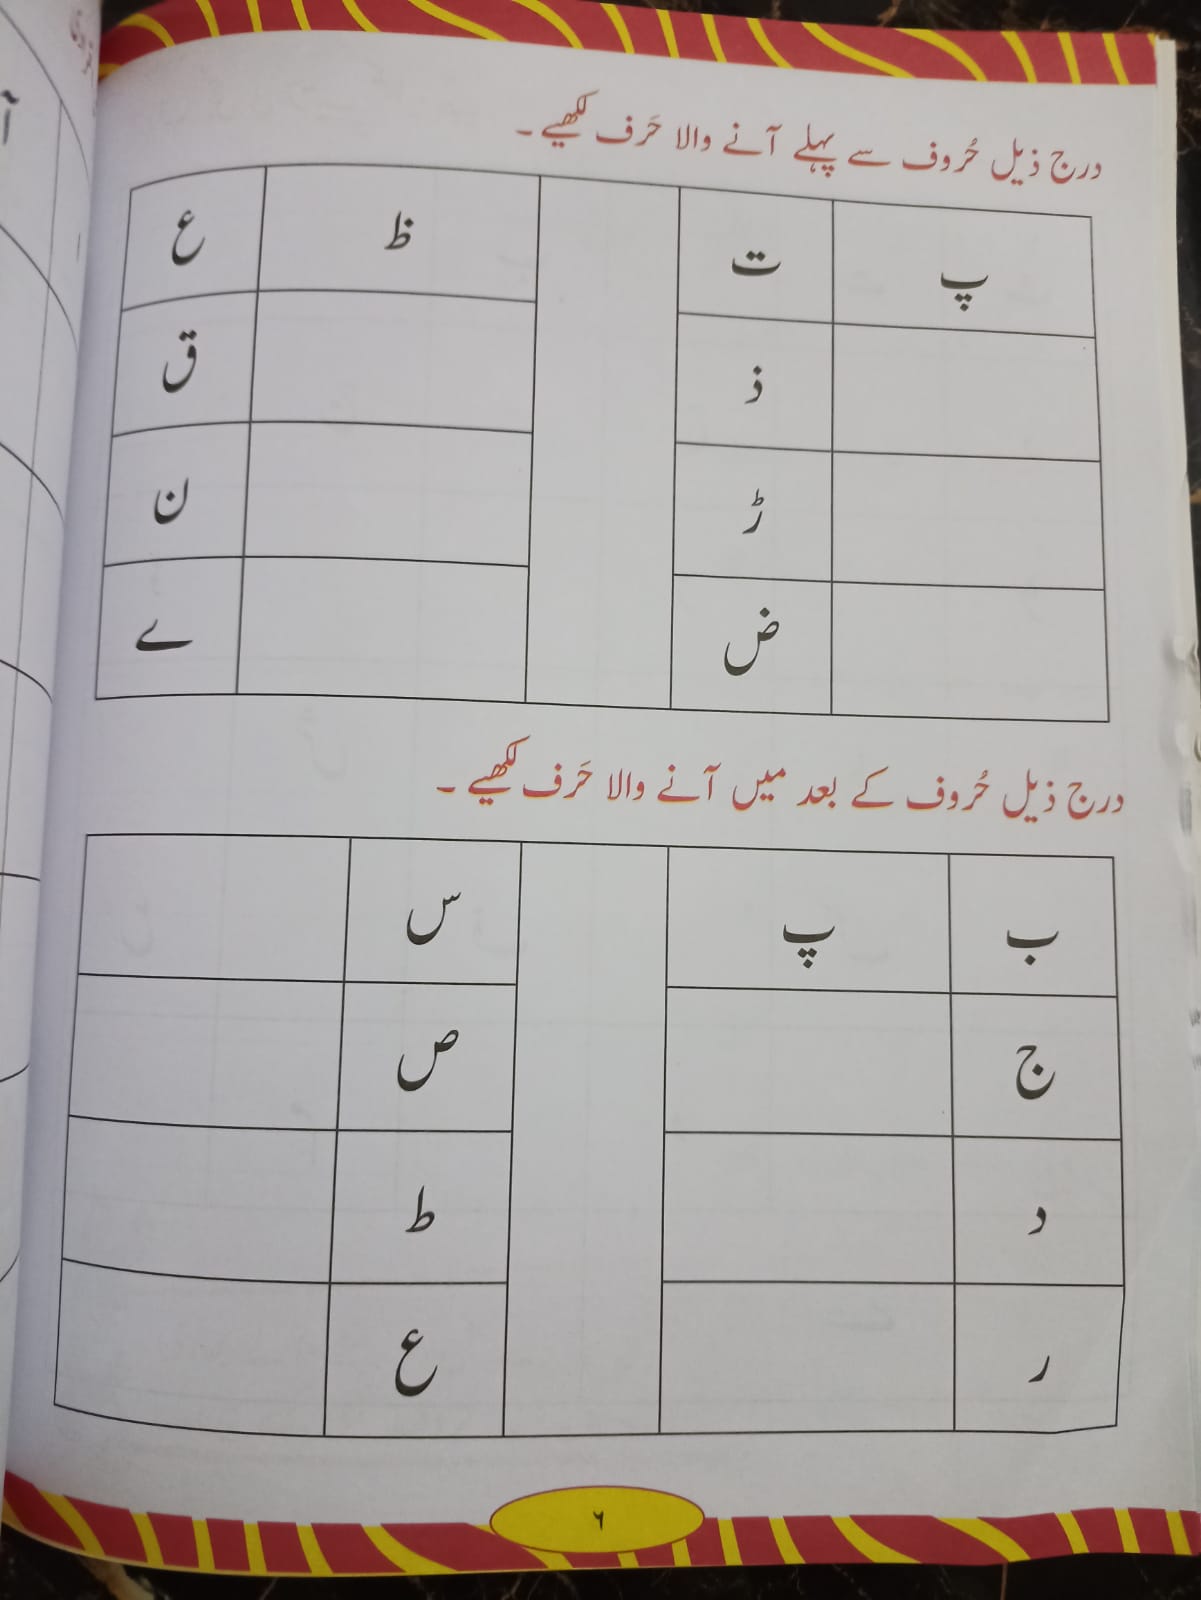 درج ذیل حُروف سے پہلے آنے والا حَرف لکھیے ۔
پ ت ظ ع
ذ ق
ڑ ن
ض ے
درج ذیل حُروف کے بعد میں آنے والا حَرف لکھیے ۔
ب پ س
ج ص
د ط
ر ع
۶